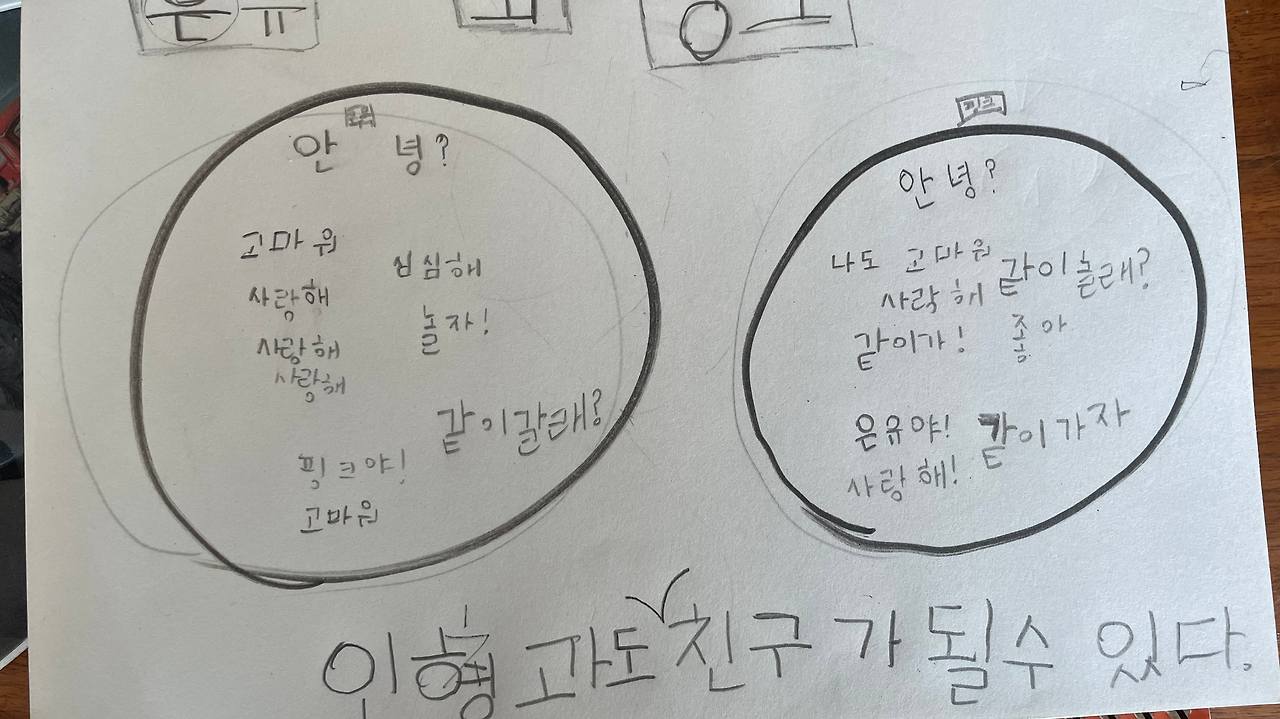 은유
안녕?
고마워
사랑해
사랑해
사랑해
심심해
놀자!
같이갈래?
핑크야!
고마워
핑크
안녕?
나도 고마워
사랑해
같이놀래?
같이가!
좋아
은유야!
사랑해!
같이가자
인형과도 친구가 될수 있다.